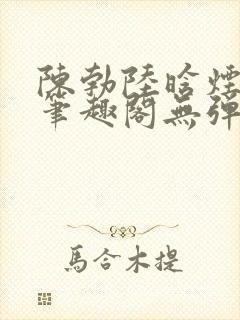 陳勃陸晗煙
筆趣閣無彈
馬合木提